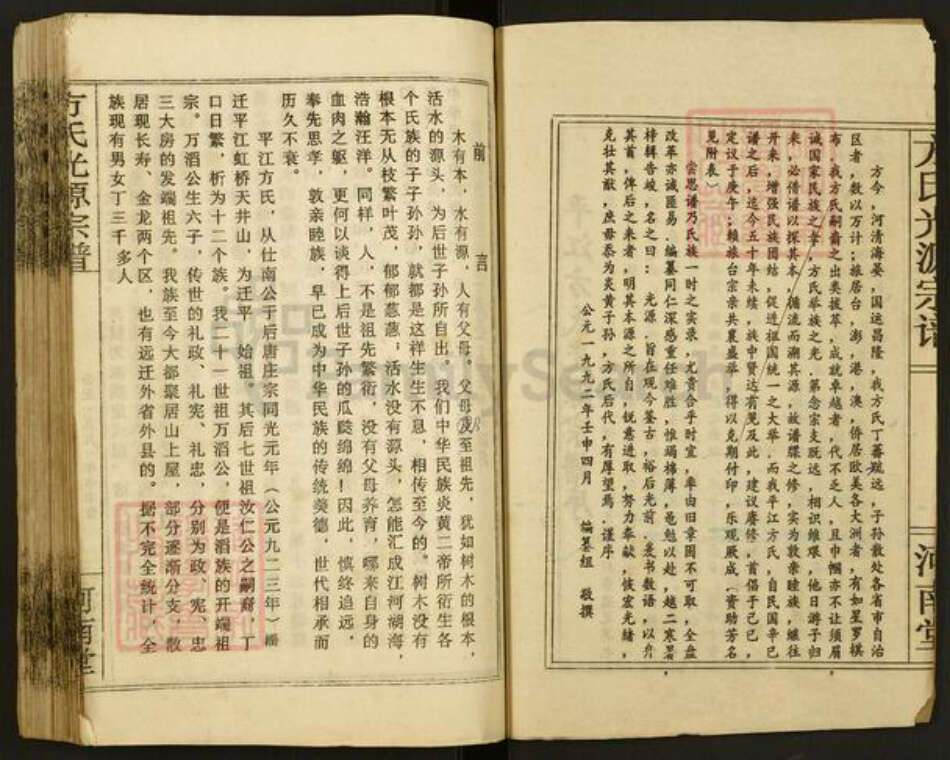 方氏光源宗谱
河南堂
方今，河清海晏，国运昌隆，我方氏丁蕃瓞远，子孙散处各省市自治
区者，数以万计；旅居台，澎，港，澳，侨居欧美各大洲者，有如星罗棋
布。我方氏嗣裔中之出类拔萃，成就卓越者，代不乏人，且巾帼亦不让须眉
诚国家民族之幸，方氏举族之光。第念宗支既远，相识维艰，他日游子归
来，必借谱以探其本，循流而溯其源，故谱牒之修，实为敦亲睦族，继往
开来，增强民族团结，促进祖国统一之大举。而我平江方氏，自民国辛巳
谱之后，迄今五十年未续，族中贤达有见及此，建议赓修，首倡于己巳，
定议于庚午；赖旅台宗亲共襄盛举，得以克期付印，乐观厥成。资助芳名
见附表）
尝思谱乃氏族一时之实录，尤贵合乎时宜，率由旧章固不可取，全盘
改革亦诚匪易。编纂同仁深感重任难胜，惟竭棉薄，黾勉以赴，越二寒暑
梓辑告峻，名之曰：光源。旨在观今鉴古，裕后光前。爰书数语，以弁
其首，俾后之来者，明其本源之所自，锐意进取，努力奉献，恢宏光绪，
克壮其猷，庶毋忝为炎黄子孙，方氏后代，有厚望焉。谨序
公元一九九二年壬申四月　编纂组　敬撰
前　言
木有本，水有源，人有父母。父母及至祖先，犹如树木的根本，
活水的源头，为后世子孙所自出。我们中华民族炎黄二帝所衍生各
个氏族的子子孙孙，就都是这样生生不息，相传至今的。树木没有
根本无从枝繁叶茂，郁郁葱葱；活水没有源头，怎能汇成江河湖海，
浩瀚汪洋。同样，人，不是祖先繁衍，没有父母养育，哪来自身的
血肉之躯，更何以谈得上后世子孙的瓜瓞绵绵！因此，慎终追远，
奉先思孝，敦亲睦族，早已成为中华民族的传统美德，世代相承而
历久不衰。
平江方氏，从仕南公于后唐庄宗同光元年（公元九二三年）
迁平江虹桥天井山，为迁平　始祖。其后七世祖汝仁公之嗣裔，丁
口日繁，析为十二个族。我二十一世祖万滔公，便是滔族的开端祖
宗。万滔公生六子，传世的礼政、礼宪、礼忠，分别为政、宪、忠
三大房的发端祖先。我族至今大都聚居山上屋，部分逐渐分支，散
居现长寿、金龙两个区，也有远迁外省外县的。据不完全统计，全
族现有男女丁三千多人
方氏光源宗谱
河南堂